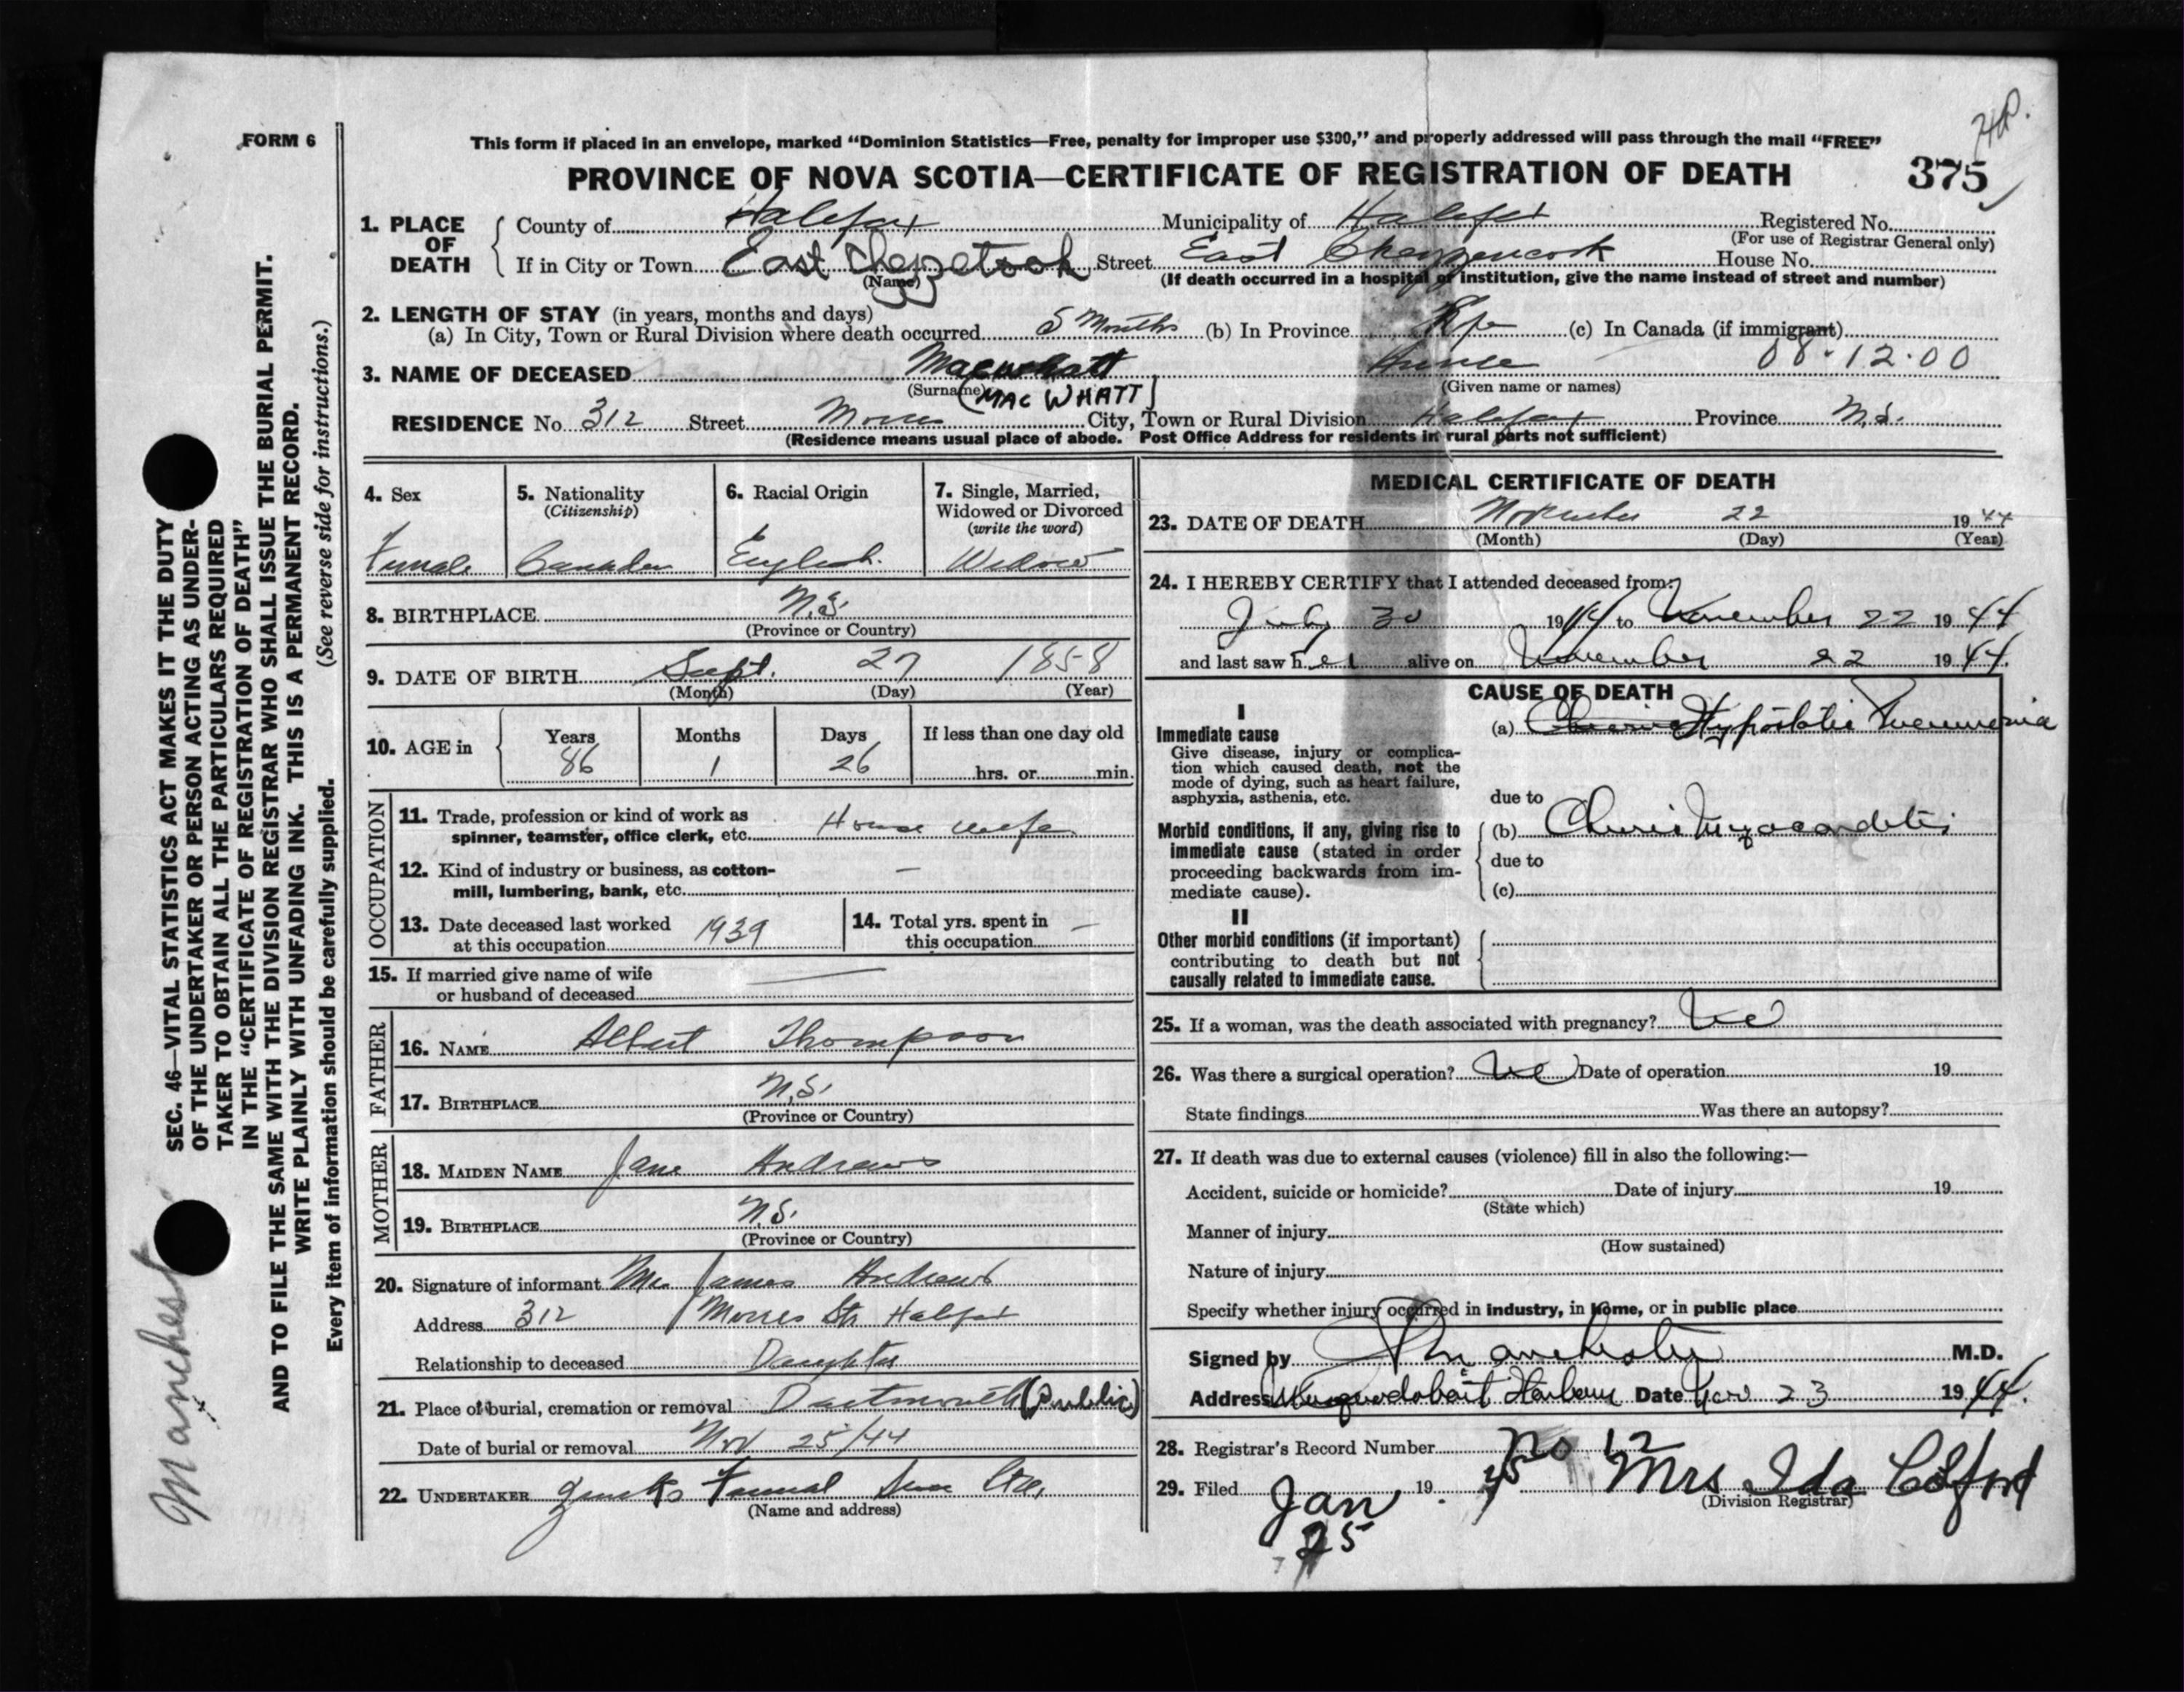 FORM 6
This form if placed in an envelope, marked "Dominion Statistics—Free, penalty for improper use $300," and properly addressed will pass through the mail "FREE"
PROVINCE OF NOVA SCOTIA—CERTIFICATE OF REGISTRATION OF DEATH 375
1. PLACE OF DEATH
County of Halifax Municipality of Halifax Registered No.
(For use of Registrar General only)
If in City or Town East Street East House No.
(Name) (If death occurred in a hospital or institution, give the name instead of street and number)
2. LENGTH OF STAY (in years, months and days)
(a) In City, Town or Rural Division where death occurred 5 Months (b) In Province (c) In Canada (if immigrant)
3. NAME OF DECEASED MacWhatt Annie 08-12-00
(Surname) (MAC WHATT) (Given name or names)
RESIDENCE No. 312 Street Morris City, Town or Rural Division Halifax Province N.S.
(Residence means usual place of abode. Post Office Address for residents in rural parts not sufficient)
4. Sex
Female
5. Nationality
(Citizenship)
Canadian
6. Racial Origin
English
7. Single, Married,
Widowed or Divorced
(write the word)
Widow
8. BIRTHPLACE N.S.
(Province or Country)
9. DATE OF BIRTH Sept. 27 1858
(Month) (Day) (Year)
10. AGE in
Years Months Days If less than one day old
86 1 26 hrs. or min.
OCCUPATION
11. Trade, profession or kind of work as
spinner, teamster, office clerk, etc. House wife
12. Kind of industry or business, as cotton-
mill, lumbering, bank, etc. —
13. Date deceased last worked
at this occupation 1939
14. Total yrs. spent in
this occupation —
15. If married give name of wife
or husband of deceased —
FATHER
16. NAME Albert Thompson
17. BIRTHPLACE N.S.
(Province or Country)
MOTHER
18. MAIDEN NAME Jane Andrews
19. BIRTHPLACE N.S.
(Province or Country)
20. Signature of informant James Andrews
Address 312 Morris St. Halifax
Relationship to deceased Daughter
21. Place of burial, cremation or removal Dartmouth (Public)
Date of burial or removal Nov 25/44
22. UNDERTAKER Funeral
(Name and address)
MEDICAL CERTIFICATE OF DEATH
23. DATE OF DEATH November 22 1944
(Month) (Day) (Year)
24. I HEREBY CERTIFY that I attended deceased from:
July 30 1944 to November 22 1944
and last saw her alive on November 22 1944.
CAUSE OF DEATH
I
Immediate cause
Give disease, injury or complica-
tion which caused death, not the
mode of dying, such as heart failure,
asphyxia, asthenia, etc.
(a) Hypostatic Pneumonia
due to
Morbid conditions, if any, giving rise to
immediate cause (stated in order
proceeding backwards from im-
mediate cause).
(b) Chronic Myocarditis
due to
(c)
II
Other morbid conditions (if important)
contributing to death but not
causally related to immediate cause.
25. If a woman, was the death associated with pregnancy? No
26. Was there a surgical operation? No Date of operation 19
State findings Was there an autopsy?
27. If death was due to external causes (violence) fill in also the following:—
Accident, suicide or homicide? Date of injury 19
(State which)
Manner of injury
(How sustained)
Nature of injury
Specify whether injury occurred in industry, in home, or in public place
Signed by Manchester M.D.
Address Musquodoboit Harbour Date Nov 23 1944.
28. Registrar's Record Number no 12
29. Filed Jan 25 19 45 Mrs Ida Colford
(Division Registrar)
SEC. 46—VITAL STATISTICS ACT MAKES IT THE DUTY
OF THE UNDERTAKER OR PERSON ACTING AS UNDER-
TAKER TO OBTAIN ALL THE PARTICULARS REQUIRED
IN THE "CERTIFICATE OF REGISTRATION OF DEATH"
AND TO FILE THE SAME WITH THE DIVISION REGISTRAR WHO SHALL ISSUE THE BURIAL PERMIT.
WRITE PLAINLY WITH UNFADING INK. THIS IS A PERMANENT RECORD.
Every item of information should be carefully supplied. (See reverse side for instructions.)
Manchest